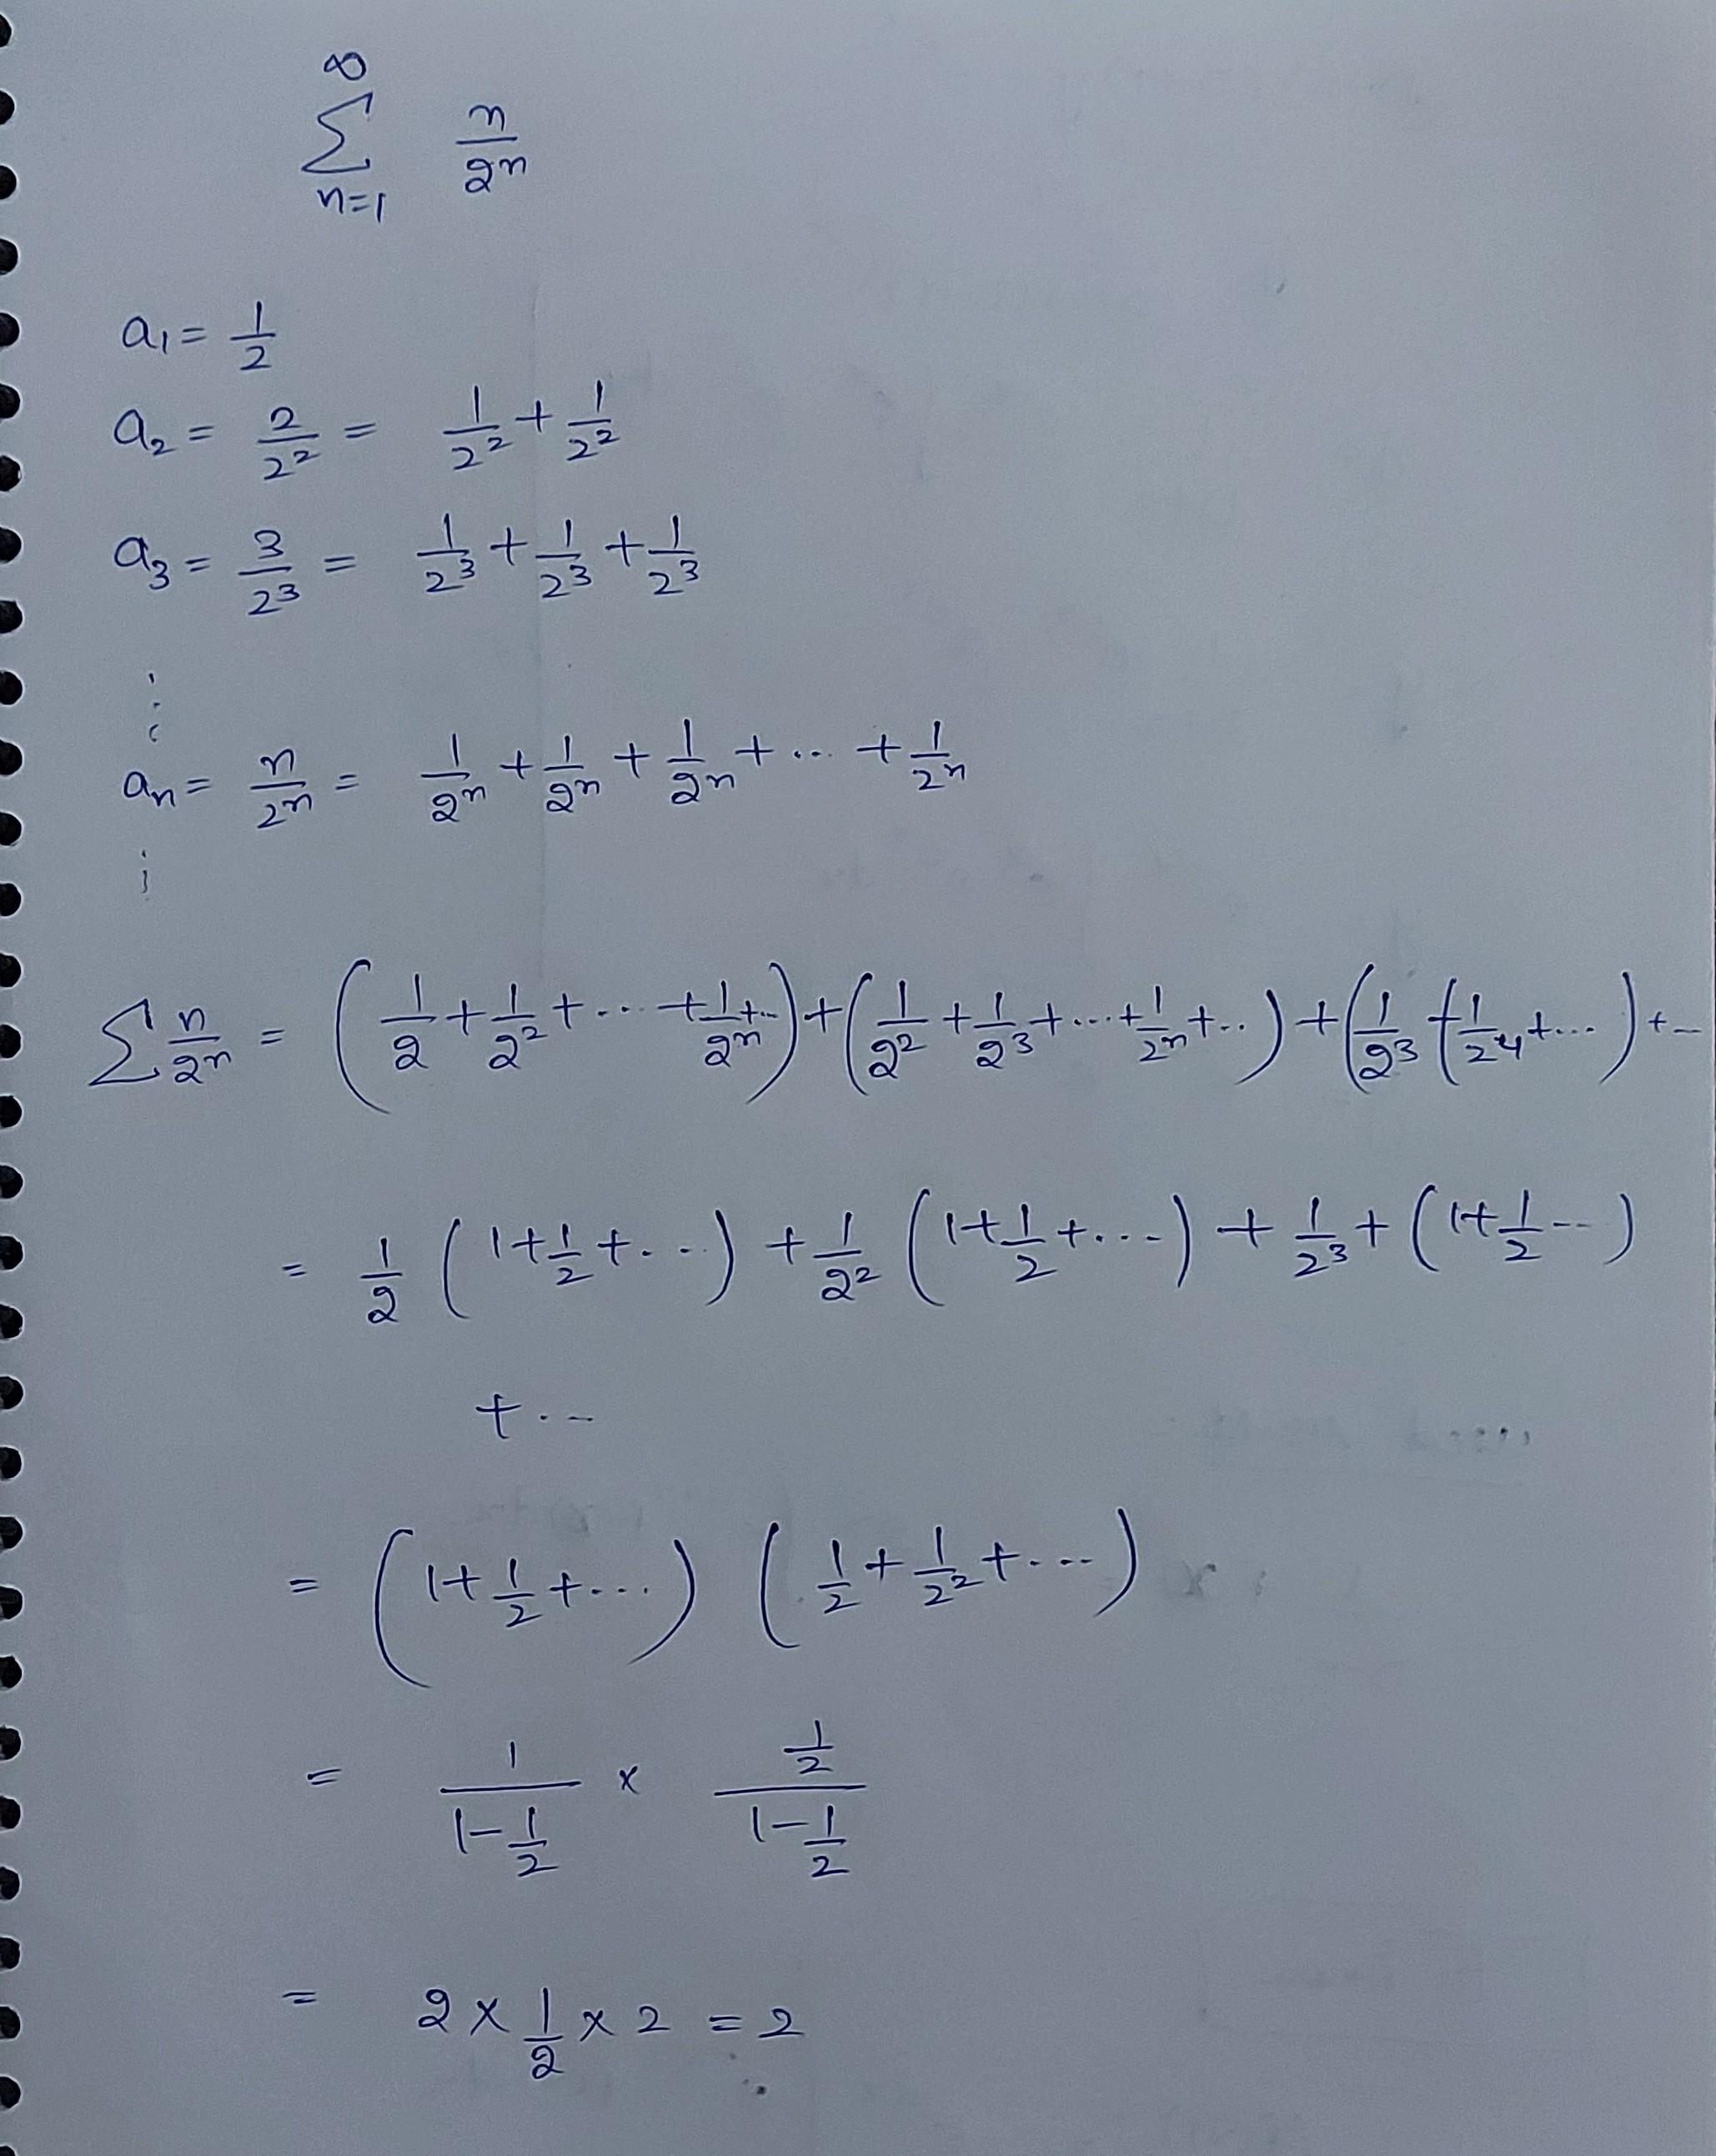 ∞
∑ n/2ⁿ
n=1
a₁ = 1/2
a₂ = 2/2² = 1/2² + 1/2²
a₃ = 3/2³ = 1/2³ + 1/2³ + 1/2³
⋮
aₙ = n/2ⁿ = 1/2ⁿ + 1/2ⁿ + 1/2ⁿ + ... + 1/2ⁿ
⋮
∑ n/2ⁿ = (1/2 + 1/2² + ... + 1/2ⁿ + ...) + (1/2² + 1/2³ + ... + 1/2ⁿ + ...) + (1/2³ + 1/2⁴ + ...) + ...
= 1/2 (1 + 1/2 + ...) + 1/2² (1 + 1/2 + ...) + 1/2³ + (1 + 1/2 ...)
+ ...
= (1 + 1/2 + ...) (1/2 + 1/2² + ...)
= 1/(1 - 1/2) × (1/2)/(1 - 1/2)
= 2 × 1/2 × 2 = 2